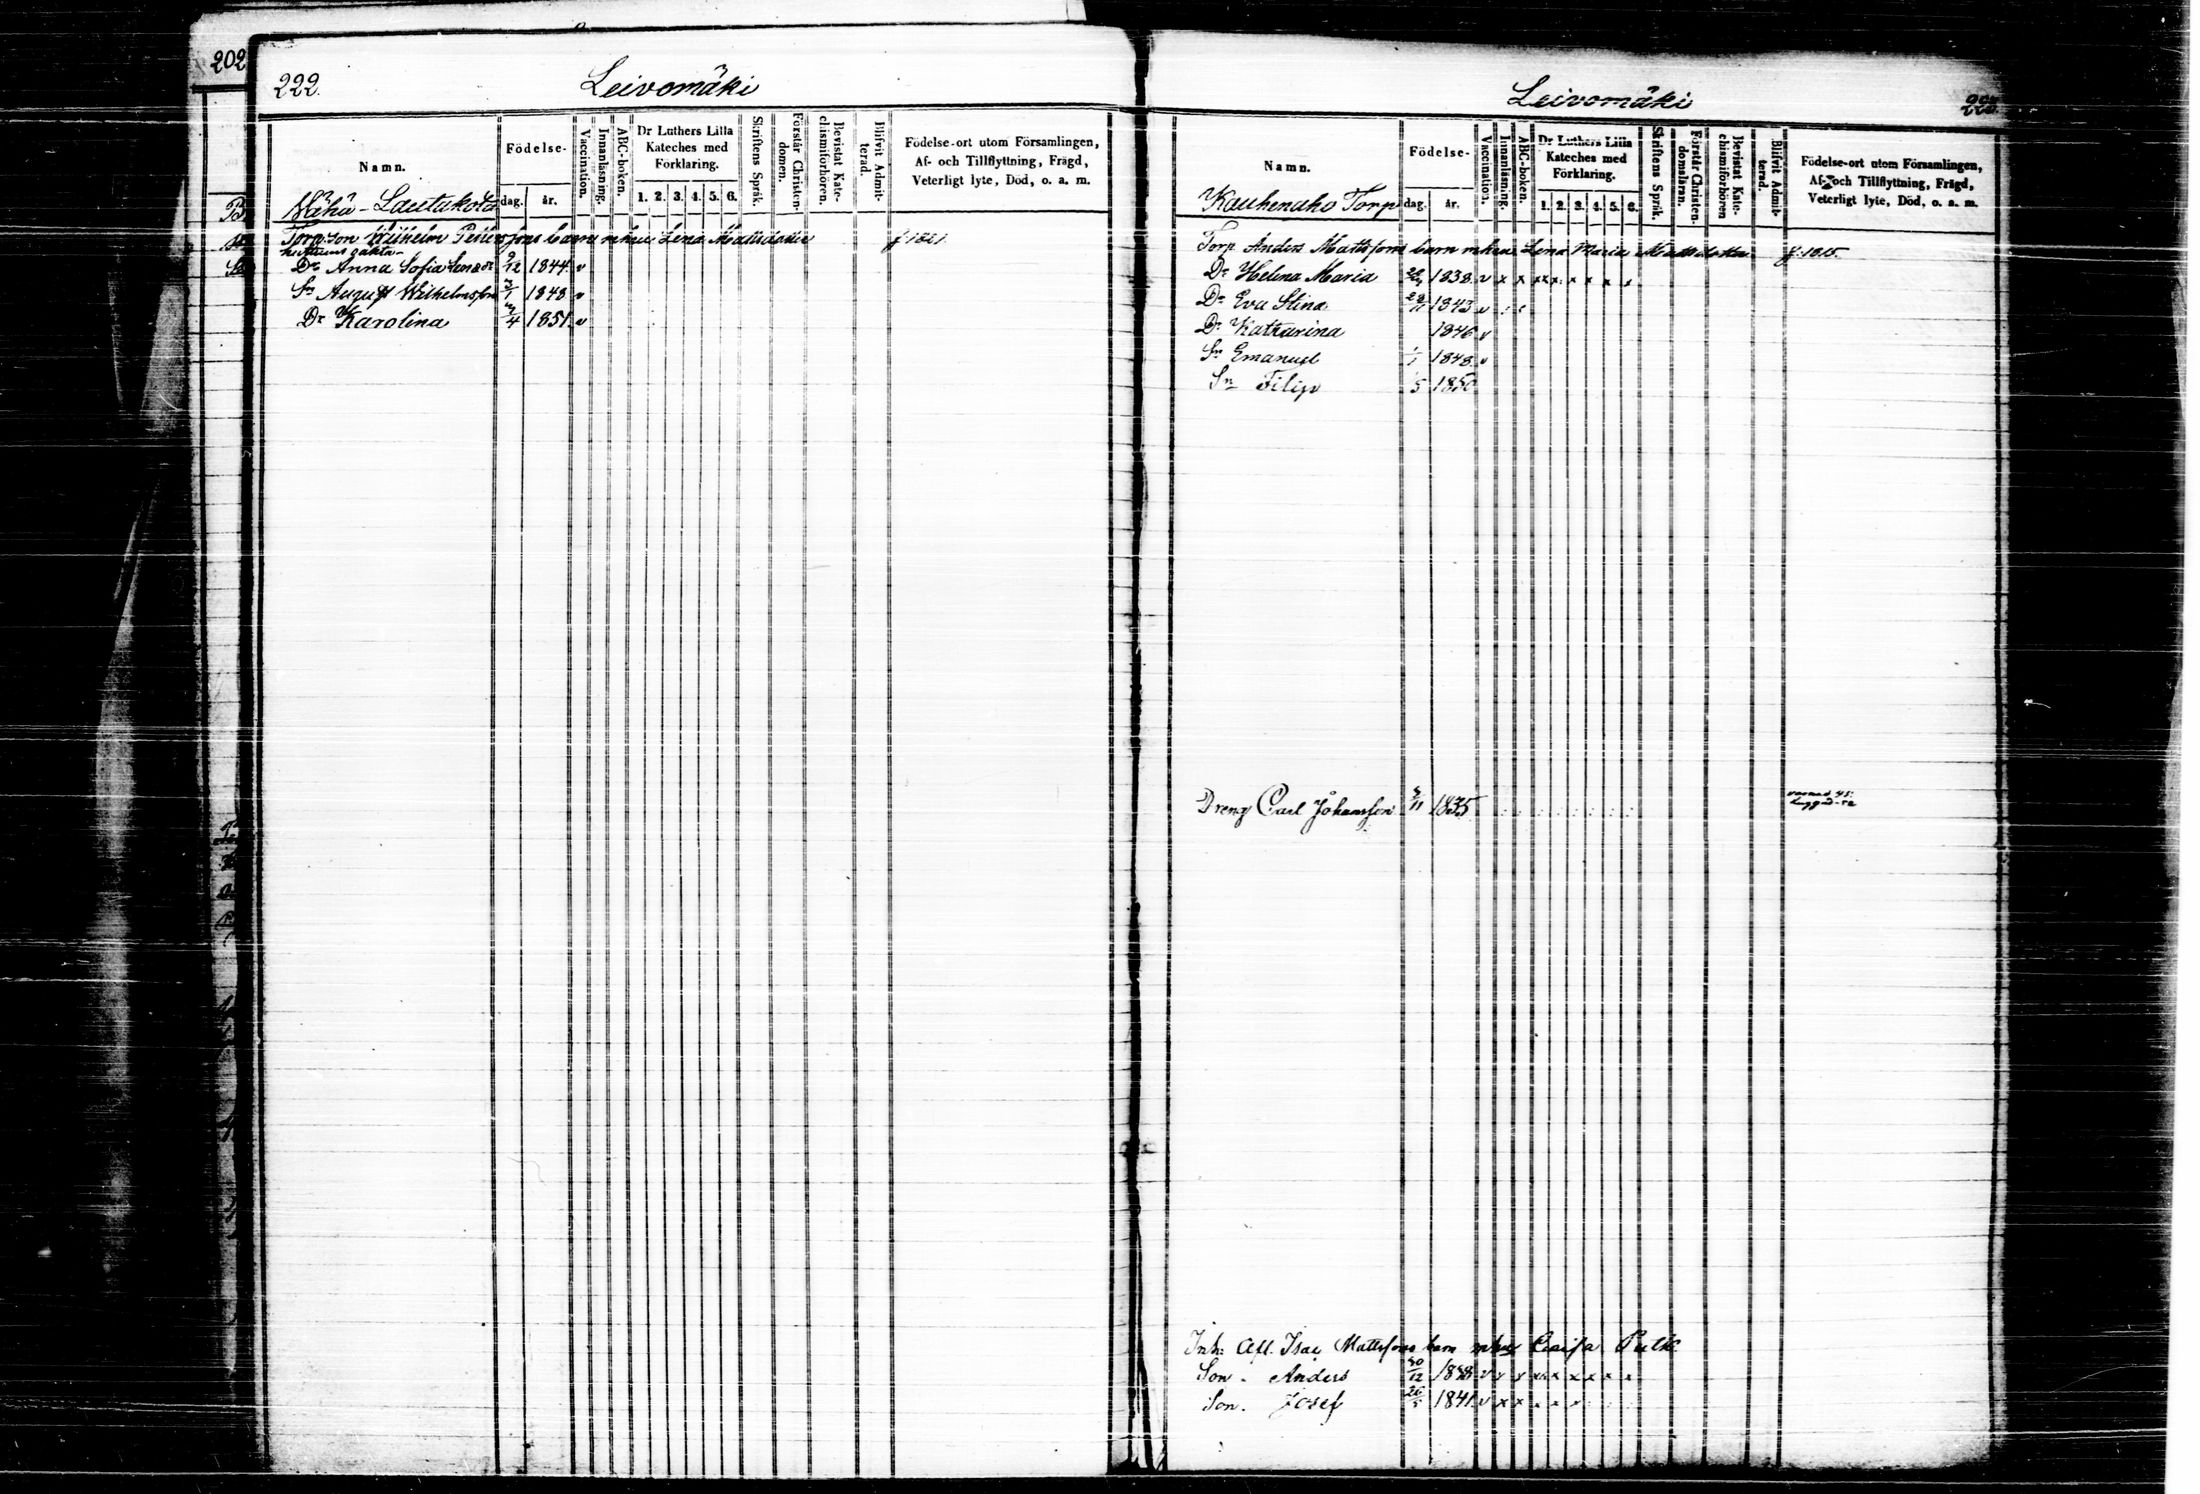 202
222.
Leivomäki
Namn.
Födelse-
dag.
år.
Vaccination.
Innanläsning.
ABC-boken.
Dr Luthers Lilla
Kateches med
Förklaring.
1. 2. 3. 4. 5. 6.
Skriftens Språk.
Förstår Christen-
domen.
Bevistat Kate-
chismiförhören.
Blifvit Admit-
terad.
Födelse-ort utom Församlingen,
Af- och Tillflyttning, Frägd,
Veterligt lyte, Död, o. a. m.
Wähä-Lautakoto
Torp. son Wilhelm Petterssons barn m hu Lena Mattsdotter
Dr Anna Sofia 9/12 1844 v
Sn August Wilhelmsson 1848 v
Dr Karolina 1851 v
Leivomäki
Namn.
Födelse-
dag.
år.
Vaccination.
Innanläsning.
ABC-boken.
Dr Luthers Lilla
Kateches med
Förklaring.
1. 2. 3. 4. 5. 6.
Skriftens Språk.
Förstår Christen-
domsläran.
Bevistat Kate-
chismiförhören
Blifvit Admit-
terad.
Födelse-ort utom Församlingen,
Af- och Tillflyttning, Frägd,
Veterligt lyte, Död, o. a. m.
Kauhenaho Torp
Torp. Anders Mattssons barn m hu Lena Maria Mattsdotter f. 1815.
Dr Helena Maria 1838 v x x x x x x x x
Dr Eva Stina 1843 v
Dr Katharina 1846 v
Sn Emanuel 1/1 1848 v
Sn Filip 1850
Dreng Carl Johansson 1835
Inh: Afl. Isac Mattssons barn m hu Caisa
Son. Anders 30/12
Son. Josef 1841 v x x x x